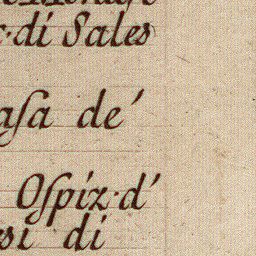 di Sales
asa de'
Ospiz: d'
si di